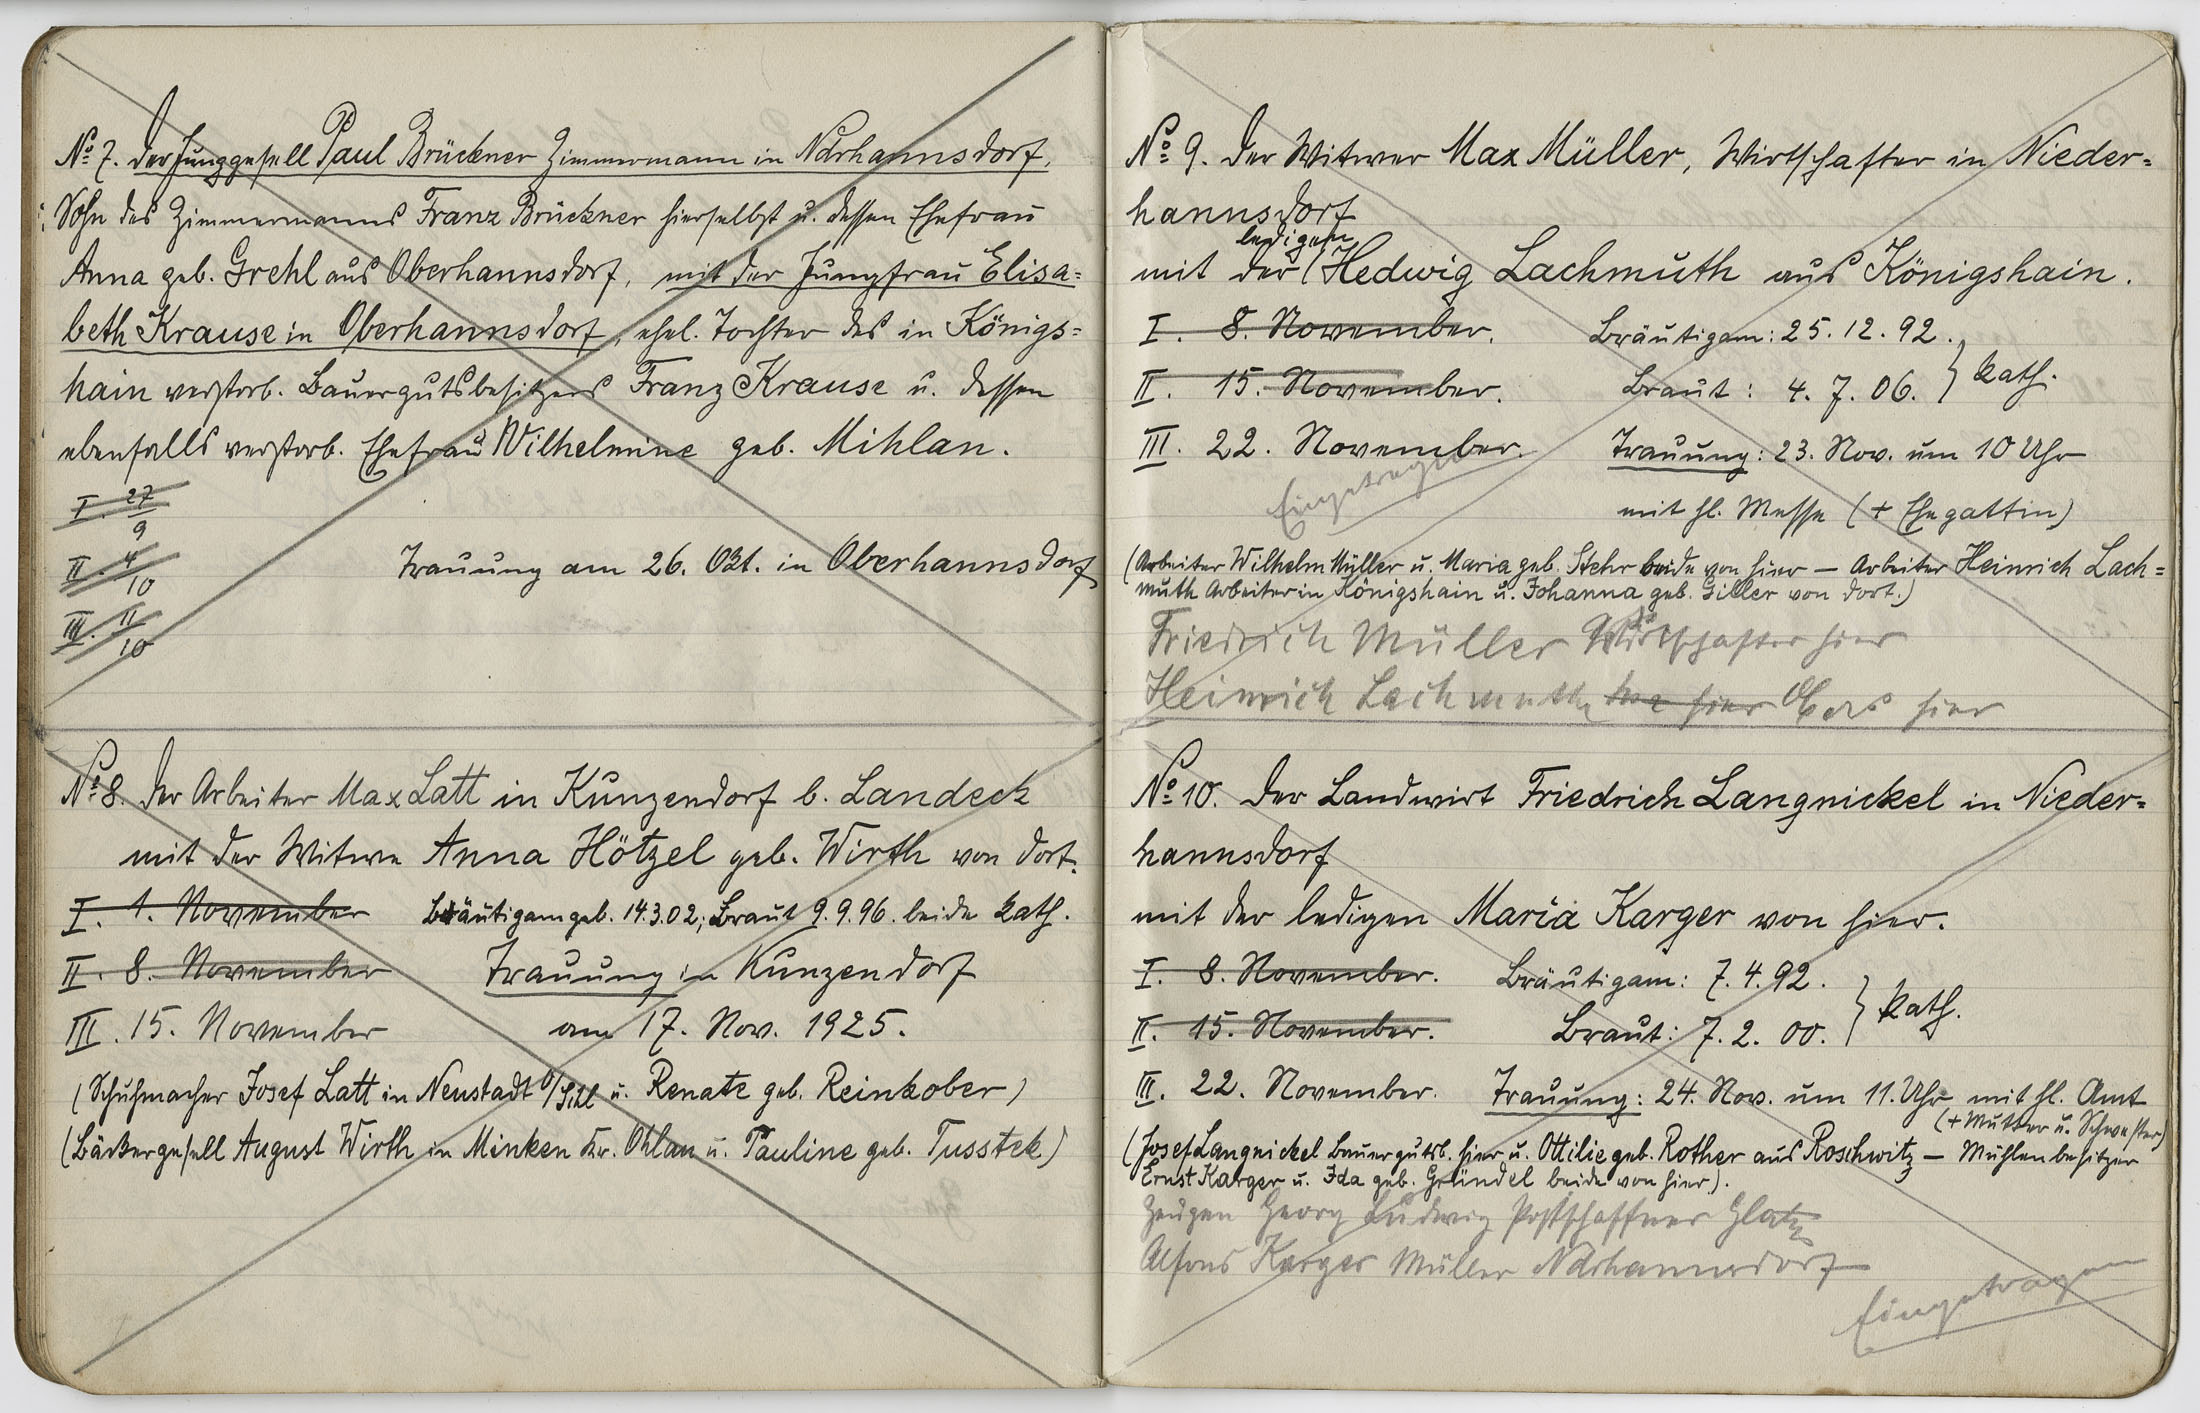 No 7. Der Junggesell Paul Brückner Zimmermann in Ndrhannsdorf,
Sohn des Zimmermanns Franz Brückner hierselbst u. dessen Ehefrau
Anna geb. Grehl aus Oberhannsdorf, mit der Jungfrau Elisa=
beth Krause in Oberhannsdorf, ehel. Tochter des in Königs=
hain verstorb. Bauergutsbesitzers Franz Krause u. dessen
ebenfalls verstorb. Ehefrau Wilhelmine geb. Mihlan.
I. 27/9
II. 4/10
Trauung am 26. Okt. in Oberhannsdorf
III. 11/10
No 8. Der Arbeiter Max Latt in Kunzendorf b. Landeck
mit der Witwe Anna Hötzel geb. Wirth von dort.
I. 1. November Bräutigam geb. 14.3.02; Braut 9.9.96. beide kath.
II. 8. November Trauung in Kunzendorf
III. 15. November am 17. Nov. 1925.
(Schuhmacher Josef Latt in Neustadt O/Schl u. Renate geb. Reinkober)
(Bäckergesell August Wirth in Minken Kr. Ohlau u. Pauline geb. Tusstek)
No 9. Der Witwer Max Müller, Wirtschafter in Nieder=
hannsdorf
ledigen
mit der (Hedwig Lachmuth aus Königshain.
I. 8. November. Bräutigam: 25.12.92.
II. 15. November. Braut: 4.7.06. } kath.
III. 22. November. Trauung: 23. Nov. um 10 Uhr
Eingetragen
mit hl. Messe (+ Ehegattin)
(Arbeiter Wilhelm Müller u. Maria geb. Stehr beide von hier — Arbeiter Heinrich Lach=
muth Arbeiter in Königshain u. Johanna geb. Giller von dort.)
Friedrich Müller Wirtschafter hier
Heinrich Lachmuth hier hier
No 10. Der Landwirt Friedrich Langnickel in Nieder=
hannsdorf
mit der ledigen Maria Karger von hier.
I. 8. November. Bräutigam: 7.4.92.
II. 15. November. Braut: 7.2.00. } kath.
III. 22. November. Trauung: 24. Nov. um 11. Uhr mit hl. Amt
(+ Mutter u. Schwester)
(Josef Langnickel Bauergutsb. hier u. Ottilie geb. Rother aus Roschwitz — Mühlenbesitzer
Ernst Karger u. Ida geb. Gründel beide von hier).
Zeugen Georg Ludwig Postschaffner Glatz
Alfons Karger Müller Ndrhannsdorf
Eingetragen